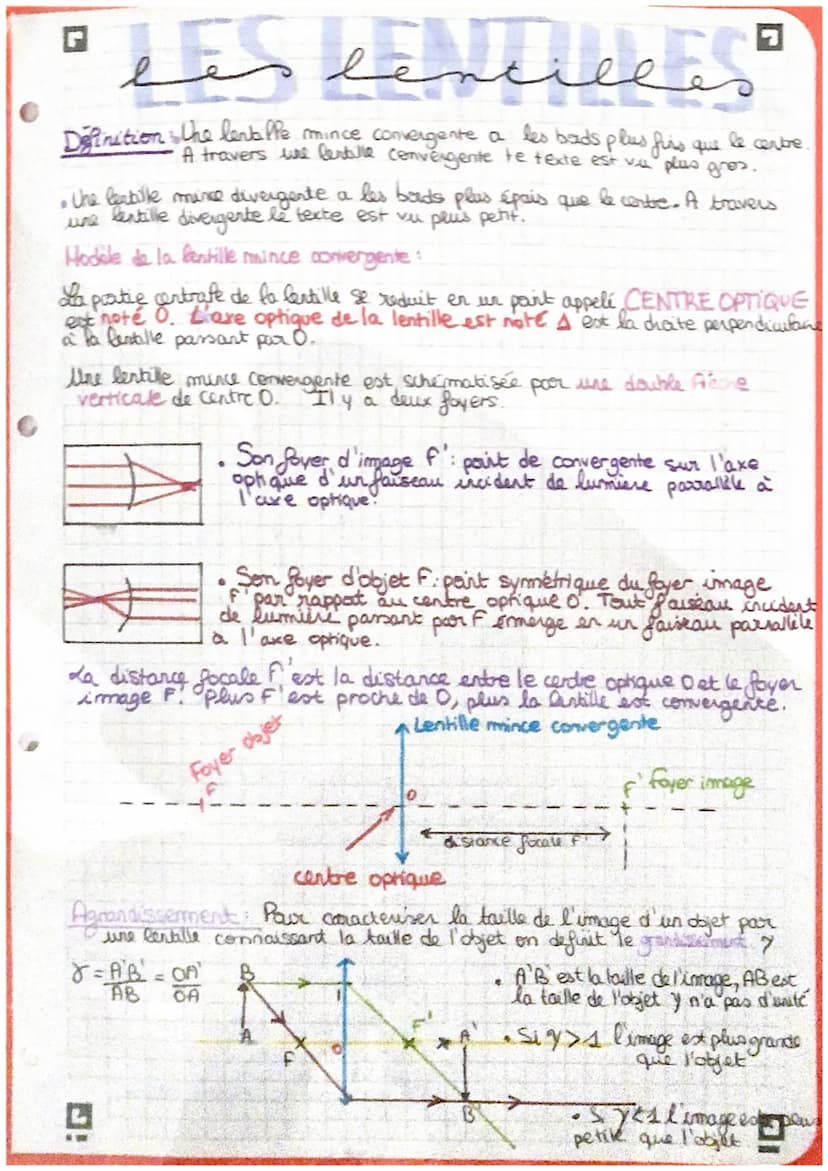 LES LENTILLES
les lentilles
Définition : Une lentille mince convergente a les bords plus fins que le centre.
A travers une lentille convergente le texte est vu plus gros.
. Une lentille mince divergente a les bords plus épais que le centre. A travers
une lentille divergente le texte est vu plus petit.
Modèle de la lentille mince convergente :
La partie centrale de la lentille se reduit en un point appelé CENTRE OPTIQUE
est noté O. L'axe optique de la lentille est noté Δ est la droite perpendiculaire
à la lentille passant par O.
Une lentille mince convergente est schématisée par une double flèche
verticale de centre O. Il y a deux foyers.
• Son foyer d'image F' : point de convergente sur l'axe
optique d'un faisceau incident de lumière parrallèle à
l'axe optique.
• Son foyer d'objet F : point symétrique du foyer image
F' par rapport au centre optique O. Tout faiseau incident
de lumière passant par F émerge en un faiseau parrallèle
à l'axe optique.
La distance focale F' est la distance entre le centre optique O et le foyer
image F'. Plus F' est proche de O, plus la lentille est convergente.
Lentille mince convergente
Foyer objet
F
O
F' foyer image
distance focale F'
centre optique
Agrandissement : Pour caracteriser la taille de l'image d'un objet par
une lentille connaissant la taille de l'objet on definit le grandissement γ
γ = A'B' / AB = OA' / OA
B
I
• A'B' est la taille de l'image, AB est
la taille de l'objet γ n'a pas d'unité
A
F
O
F'
A'
• Si γ>1 l'image est plus grande
que l'objet
B'
• Si γ<1 l'image est plus
petite que l'objet